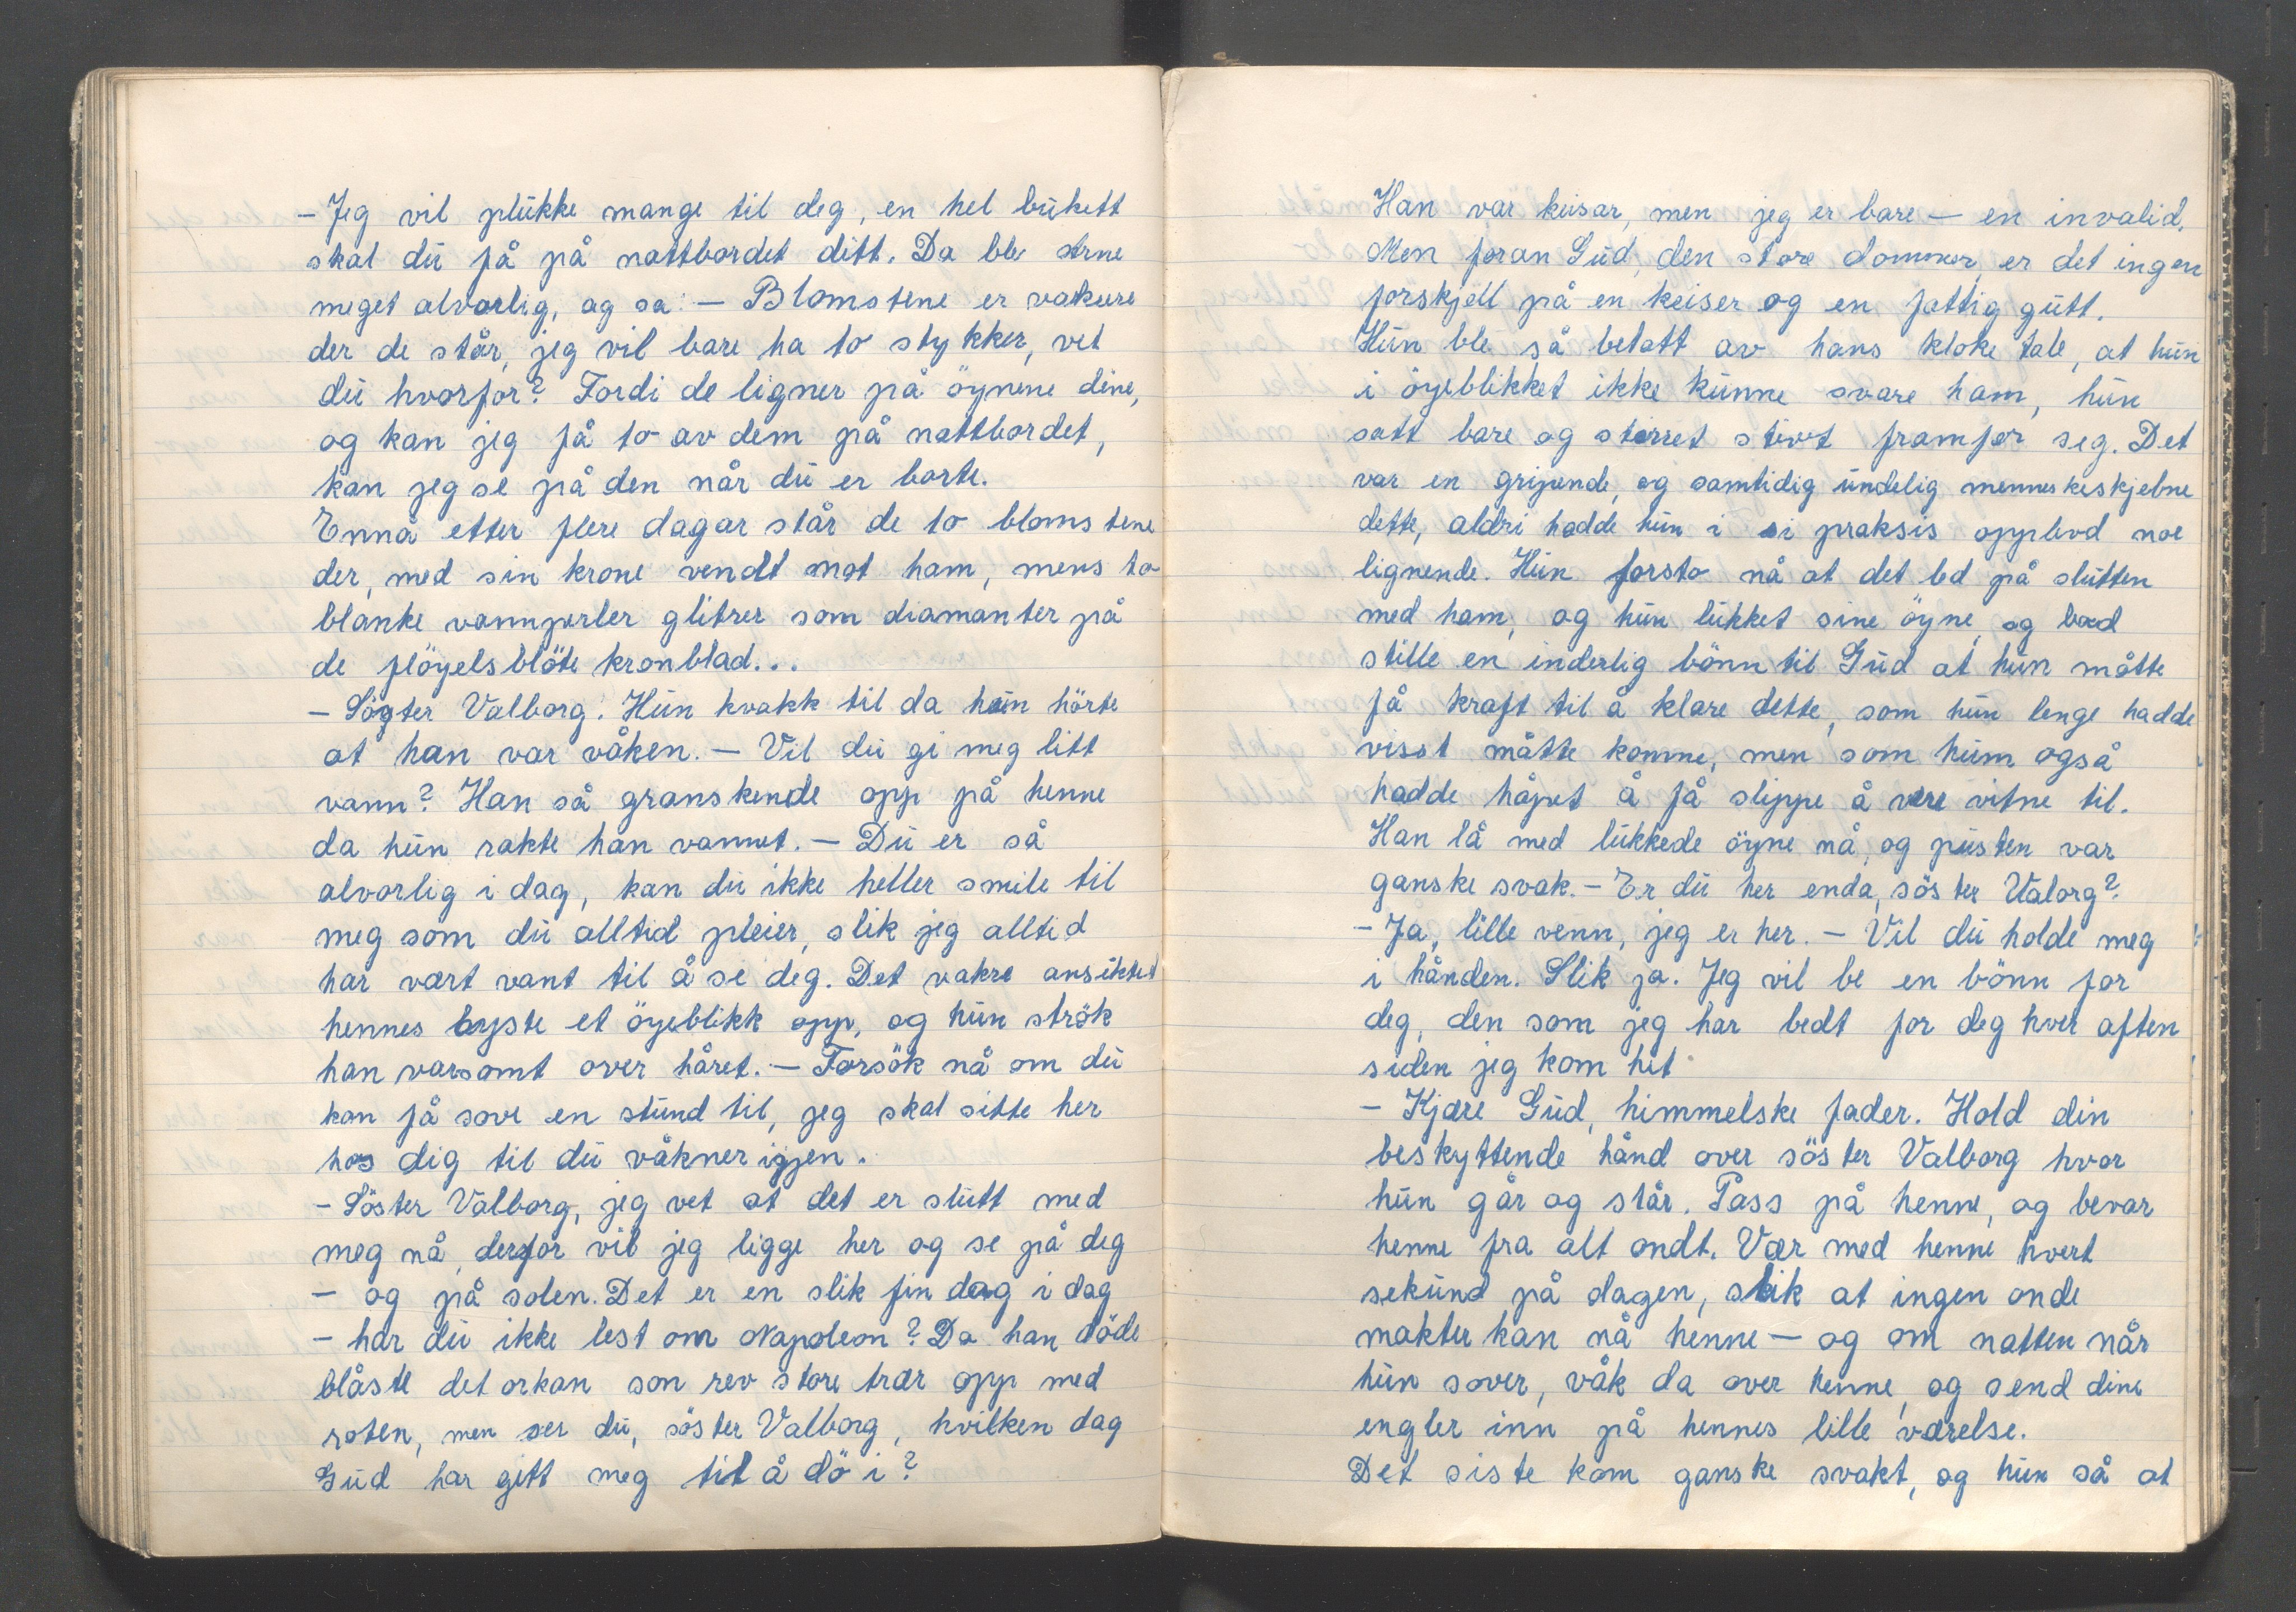 - Jeg vil plukke mange til deg, en hel bukett
skal du få på nattbordet ditt. Da ble Arne
meget alvorlig, og sa: - Blomstene er vakere
der de står, jeg vil bare ha to stykker, vet
du hvorfor? Fordi de ligner på öynene dine,
og kan jeg få to av dem på nattbordet,
kan jeg se på den når du er borte.
Ennå etter flere dagar står de to blomstene
der, med sin krone vendt mot ham, mens to
blanke vannperler glitrer som diamanter på
de flöyelsblöte kronblad...
- Söster Valborg. Hun kvakk til da hun hörte
at han var våken. - Vil du gi meg litt
vann? Han så granskende opp på henne
da hun rakte han vannet. - Du er så
alvorlig i dag, kan du ikke heller smile til
meg som du alltid pleier, slik jeg alltid
har vært vant til å se deg. Det vakre ansiktet
hennes lyste et öyeblikk opp, og hun strök
han varsomt over håret. - Forsök nå om du
kan få sove en stund til, jeg skal sitte her
hos dig til du våkner igjen.
- Söster Valborg, jeg vet at det er slutt med
meg nå, derfor vil jeg ligge her og se på deg
- og på solen. Det er en slik fin dag i dag
- har du ikke lest om Napoleon? Da han döde
blåste det orkan son rev store trær opp med
roten, men ser du, söster Valborg, hvilken dag
Gud har gitt meg til å dö i?
Han var keisar, men jeg er bare - en invalid.
Men foran Gud, den store dommer, er det ingen
forskjell på en keiser og en fattig gutt.
Hun ble så betatt av hans kloke tale, at hun
i öyeblikket ikke kunne svare ham, hun
satt bare og stirret stivt framfor seg. Det
var en gripende, og samtidig undelig menneskeskjebne
dette, aldri hadde hun i si praksis opplevd noe
lignende. Hun forsto nå at det led på slutten
med ham, og hun lukket sine öyne, og bad
stille en inderlig bönn til Gud at hun måtte
få kraft til å klare dette, som hun lenge hadde
visst måtte komme, men som hun også
hadde håpet å få slippe å være vitne til.
Han lå med lukkede öyne nå, og pusten var
ganske svak. - Er du her enda, söster Valorg?
- Ja, lille venn, jeg er her. - Vil du holde meg
i hånden. Slik ja. Jeg vil be en bönn for
deg, den som jeg har bedt for deg hver aften
siden jeg kom hit
- Kjære Gud, himmelske fader. Hold din
beskyttende hånd over söster Valborg hvor
hun går og står. Pass på henne, og bevar
henne fra alt ondt. Vær med henne hvert
sekund på dagen, slik at ingen onde
makter kan nå henne - og om natten når
hun sover, våk da over henne, og send dine
engler inn på hennes lille værelse.
Det siste kom ganske svakt, og hun så at